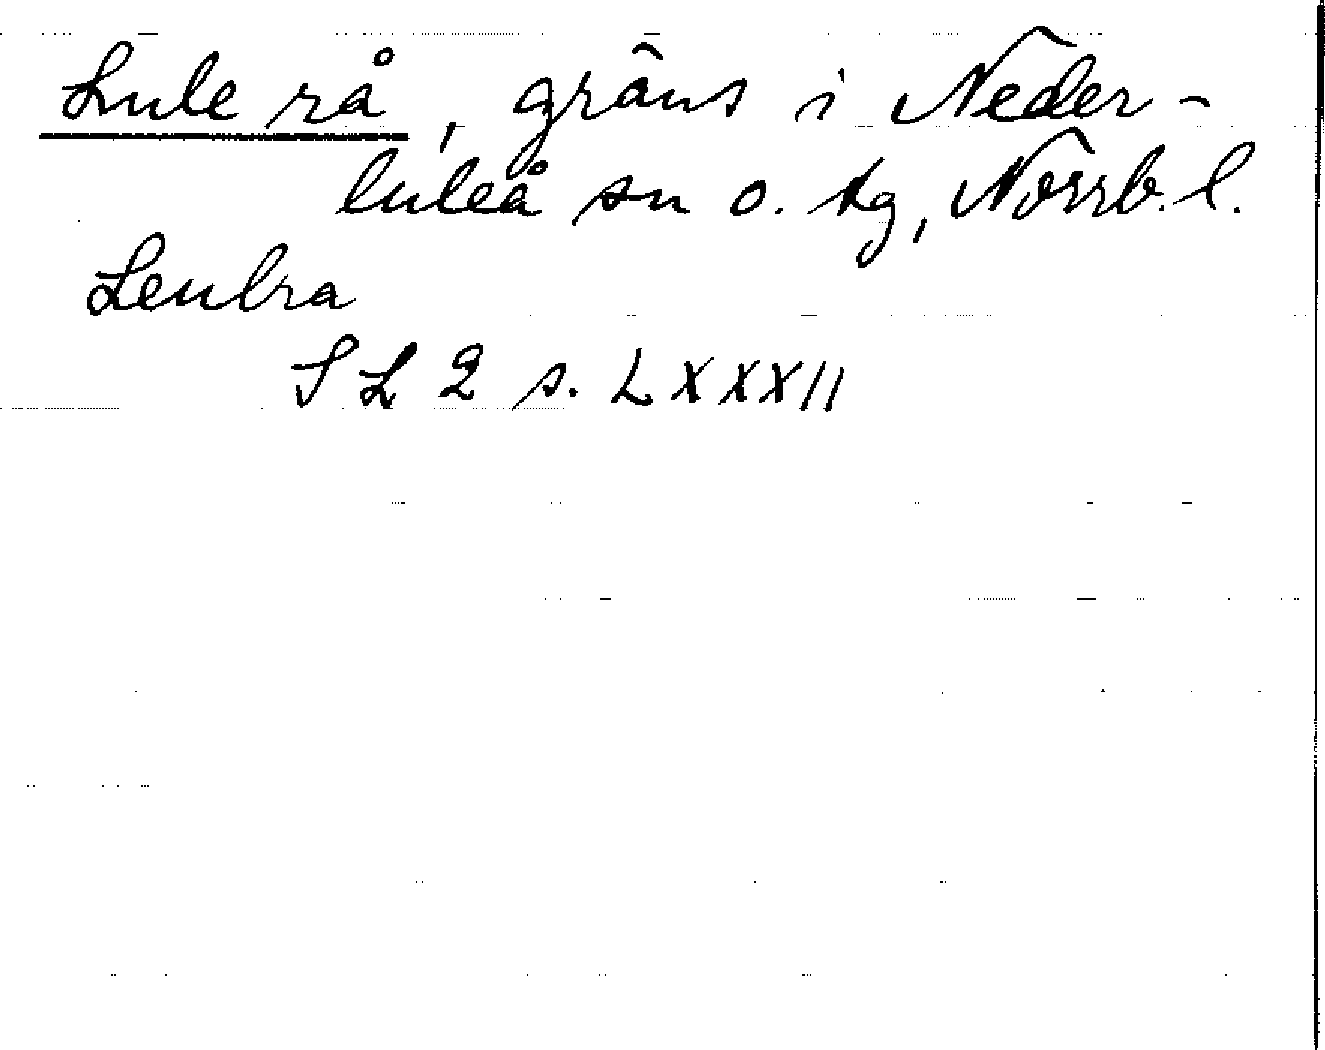 Lule rå, gräns i Neder-
luleå sn o. tg, Norrb. l.
Leulra
S L 2 s. LXXXII